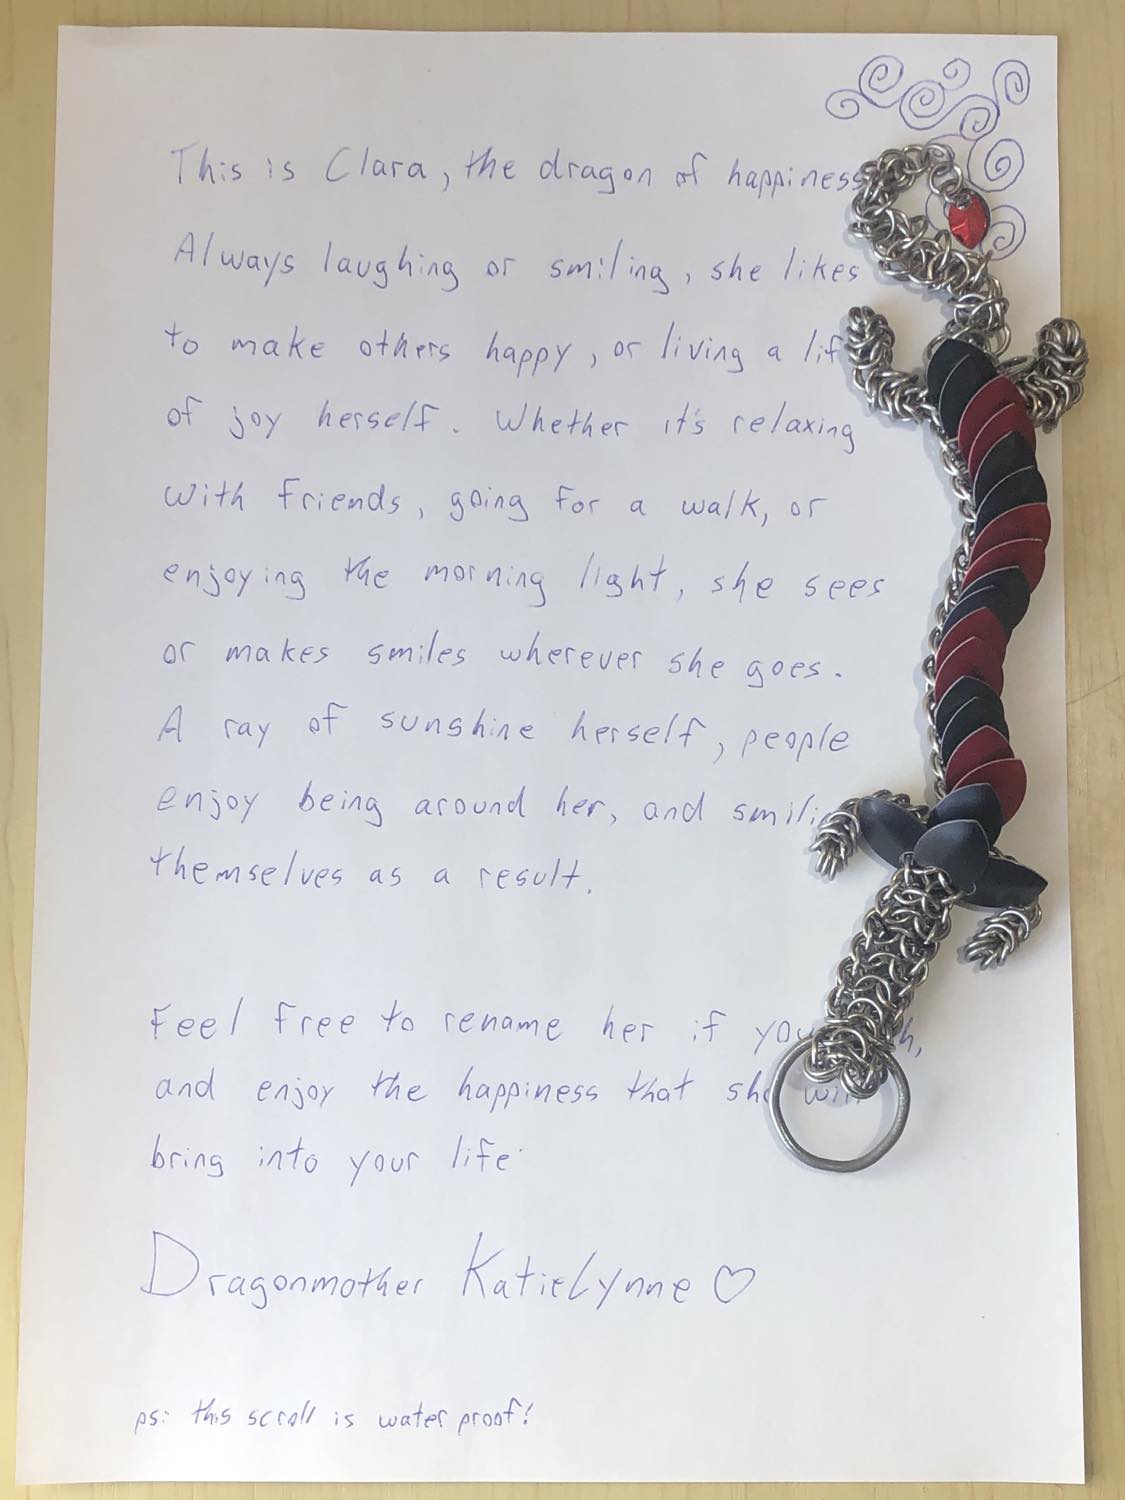 This is Clara, the dragon of happiness
Always laughing or smiling, she likes
to make others happy, or living a lif
of joy herself. Whether it's relaxing
with friends, going for a walk, or
enjoying the morning light, she sees
or makes smiles wherever she goes.
A ray of sunshine herself, people
enjoy being around her, and smili
themselves as a result.
Feel free to rename her if you
and enjoy the happiness that she will
bring into your life.
Dragonmother KatieLynne ♡
ps: this scroll is water proof!